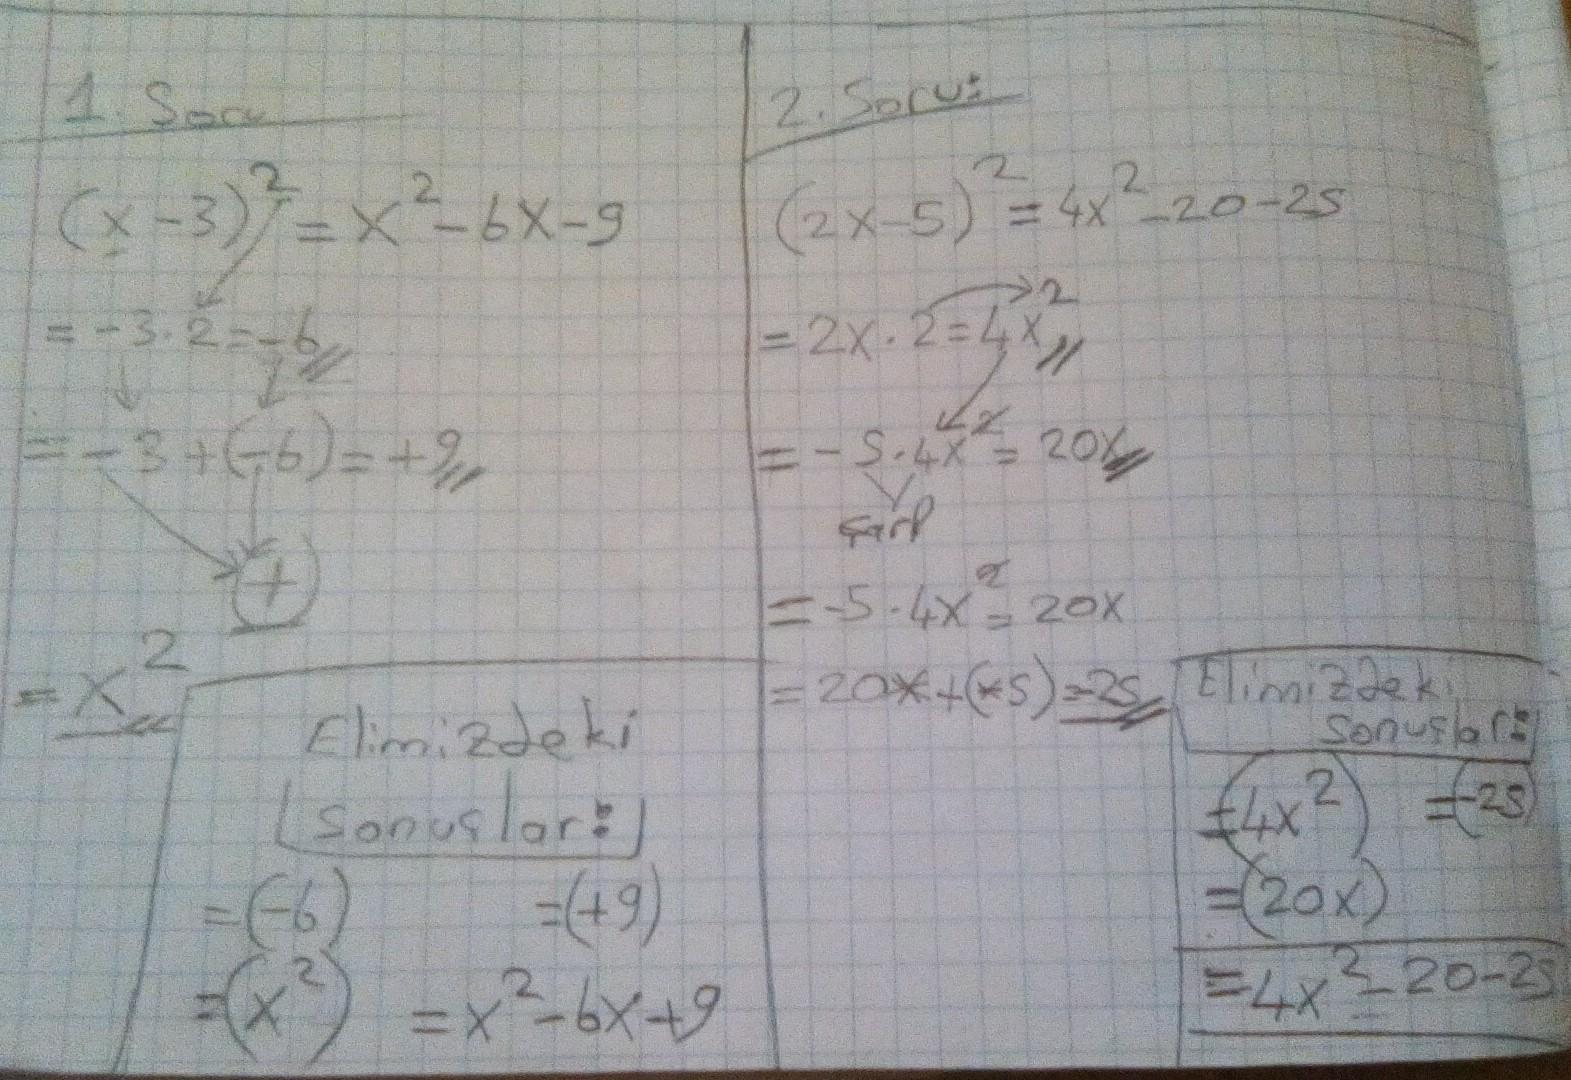 1. Soru
(x-3)² = x² - 6x - 9
= -3 . 2 = -6
= -3 + (-6) = +9
+
= x²
Elimizdeki
Sonuçlar:
= (-6) = (+9)
= (x²) = x² - 6x + 9
2. Soru:
(2x-5)² = 4x² - 20 - 25
= 2x . 2 = 4x²
= -5 . 4x² = 20x
çarp
= -5 . 4x² = 20x
= 20x + (-5) = 25
Elimizdeki
Sonuçlar:
= (4x²) = (-25)
= (20x)
= 4x² - 20 - 25